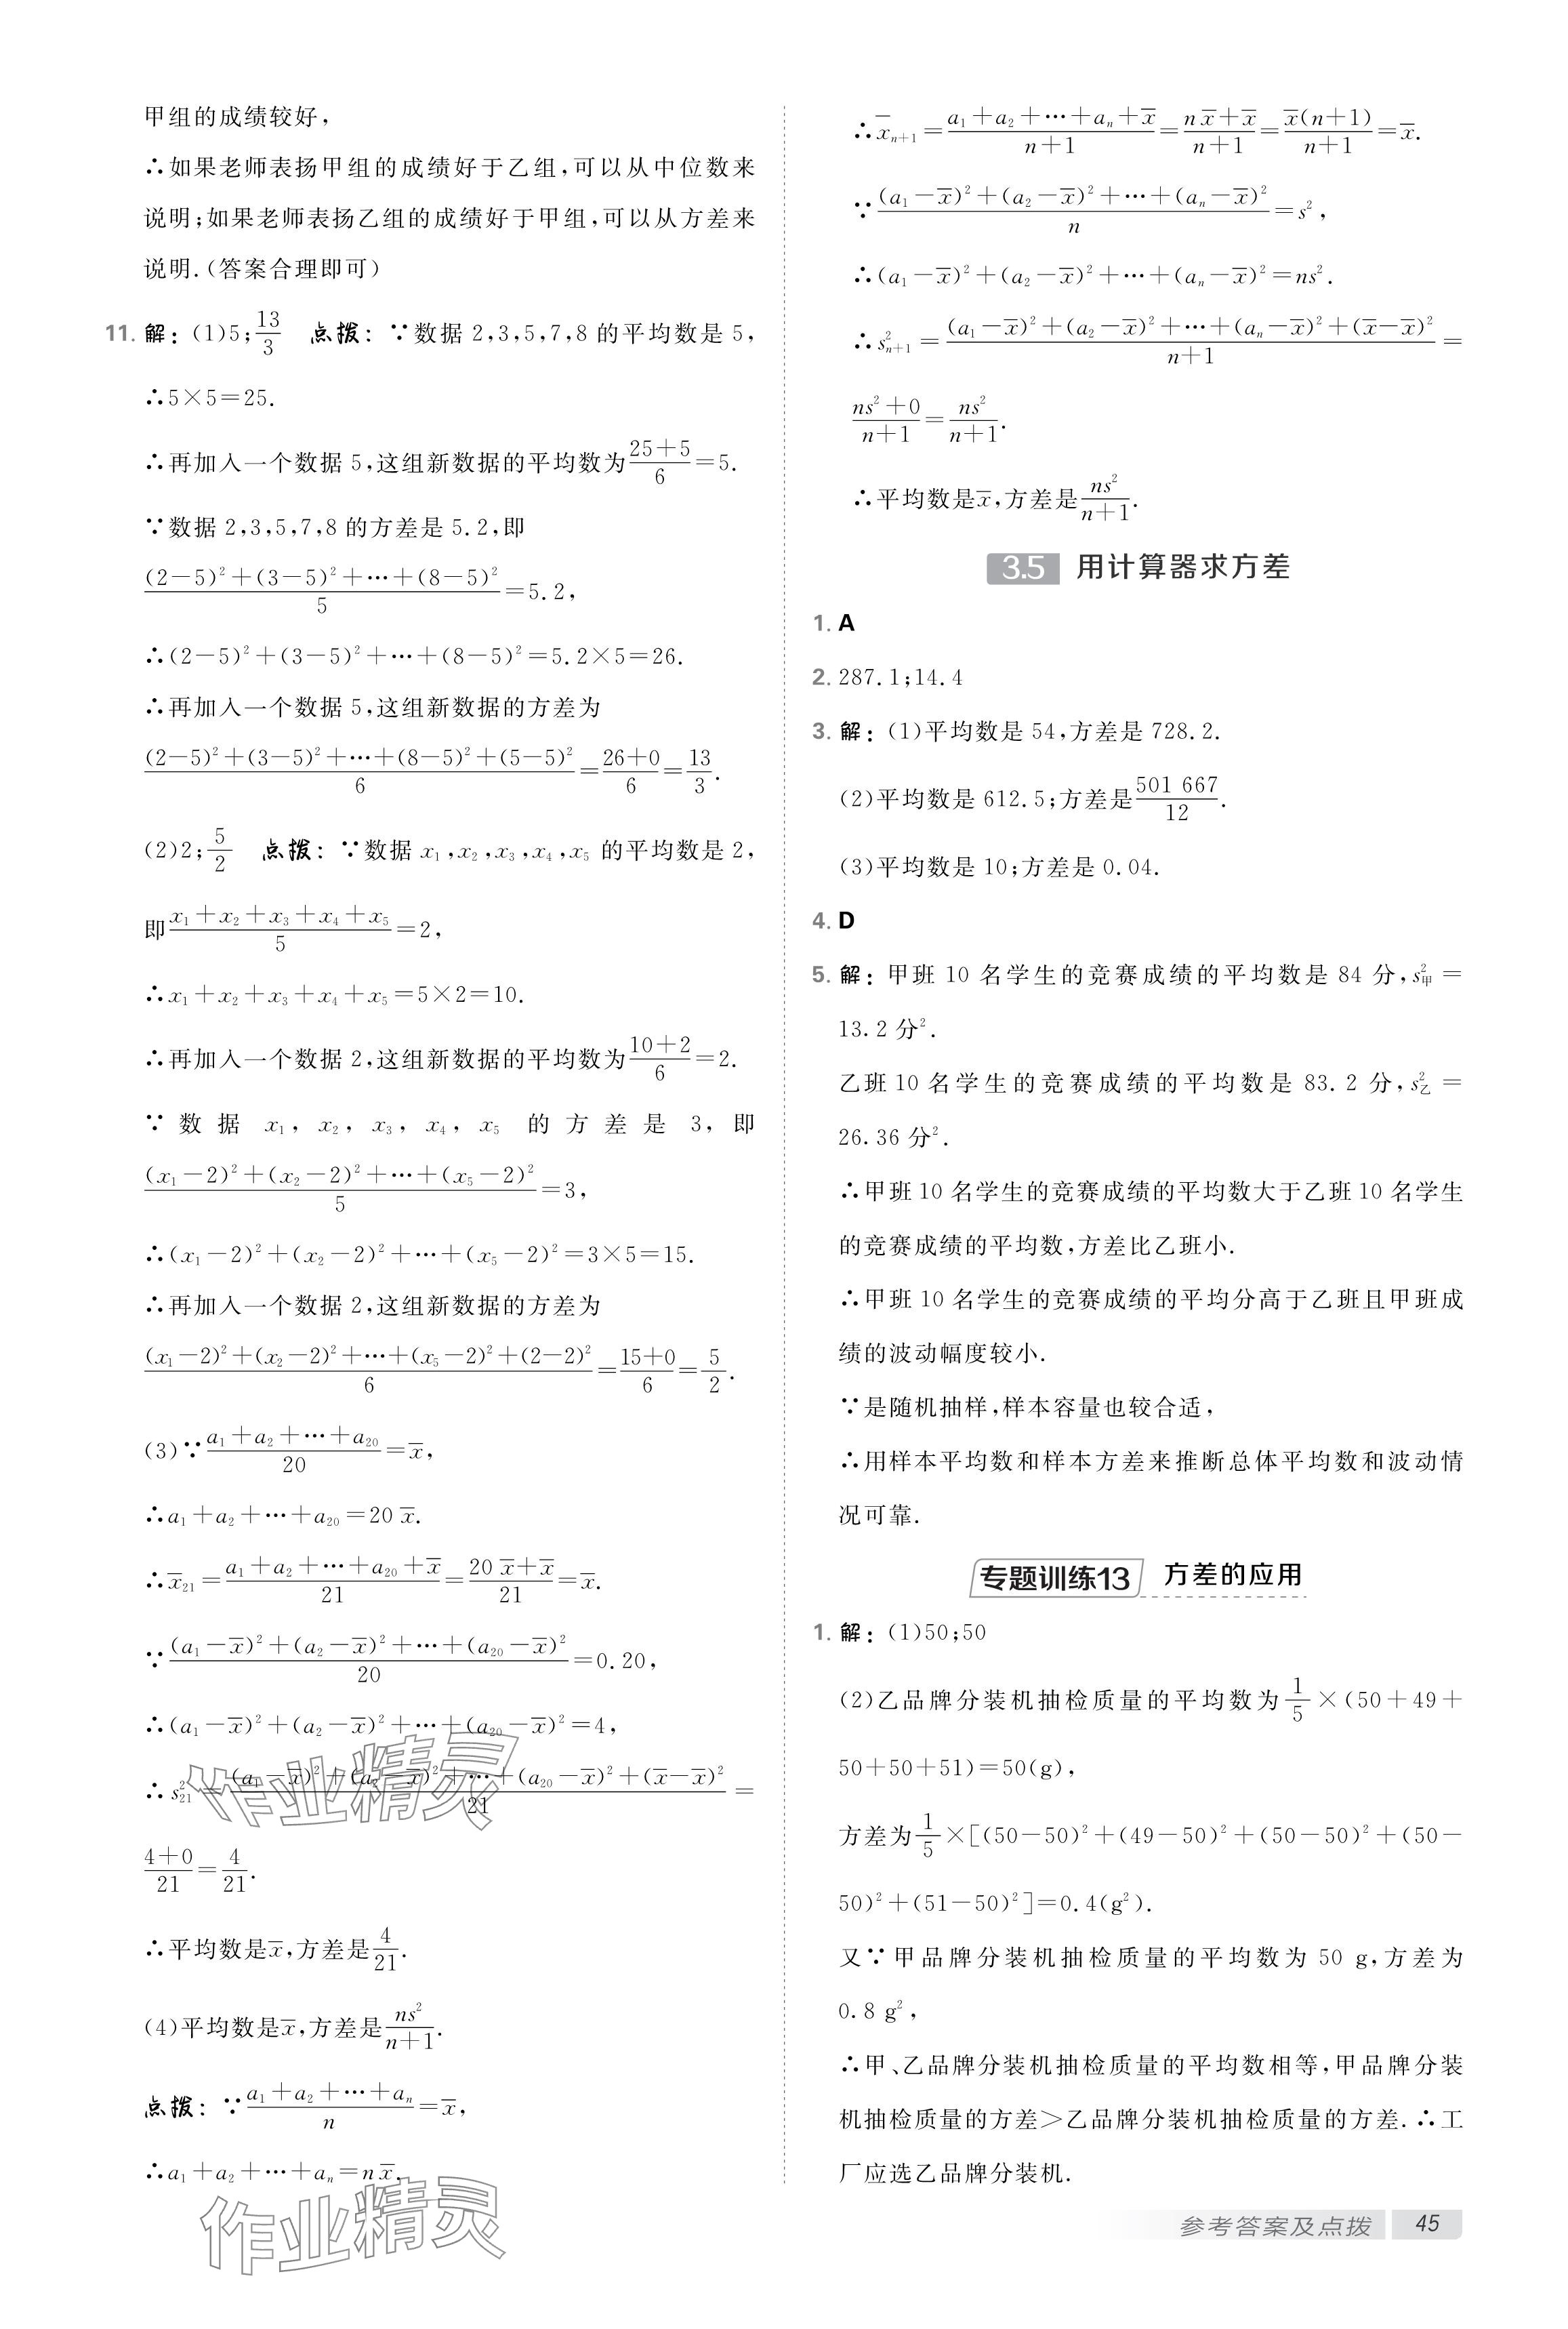 甲组的成绩较好,
∴如果老师表扬甲组的成绩好于乙组,可以从中位数来
说明;如果老师表扬乙组的成绩好于甲组,可以从方差来
说明.(答案合理即可)
11. 解:(1)5;13/3 点拨:∵数据 2,3,5,7,8 的平均数是 5,
∴5×5=25.
∴再加入一个数据 5,这组新数据的平均数为(25+5)/6=5.
∵数据 2,3,5,7,8 的方差是 5.2,即
((2-5)²+(3-5)²+…+(8-5)²)/5=5.2,
∴(2-5)²+(3-5)²+…+(8-5)²=5.2×5=26.
∴再加入一个数据 5,这组新数据的方差为
((2-5)²+(3-5)²+…+(8-5)²+(5-5)²)/6=(26+0)/6=13/3.
(2)2;5/2 点拨:∵数据 x₁,x₂,x₃,x₄,x₅ 的平均数是 2,
即(x₁+x₂+x₃+x₄+x₅)/5=2,
∴x₁+x₂+x₃+x₄+x₅=5×2=10.
∴再加入一个数据 2,这组新数据的平均数为(10+2)/6=2.
∵数据 x₁,x₂,x₃,x₄,x₅ 的方差是 3,即
((x₁-2)²+(x₂-2)²+…+(x₅-2)²)/5=3,
∴(x₁-2)²+(x₂-2)²+…+(x₅-2)²=3×5=15.
∴再加入一个数据 2,这组新数据的方差为
((x₁-2)²+(x₂-2)²+…+(x₅-2)²+(2-2)²)/6=(15+0)/6=5/2.
(3)∵(a₁+a₂+…+a₂₀)/20=x̄,
∴a₁+a₂+…+a₂₀=20x̄.
∴x̄₂₁=(a₁+a₂+…+a₂₀+x̄)/21=(20x̄+x̄)/21=x̄.
∵((a₁-x̄)²+(a₂-x̄)²+…+(a₂₀-x̄)²)/20=0.20,
∴(a₁-x̄)²+(a₂-x̄)²+…+(a₂₀-x̄)²=4,
∴s²₂₁=((a₁-x̄)²+(a₂-x̄)²+…+(a₂₀-x̄)²+(x̄-x̄)²)/21=
(4+0)/21=4/21.
∴平均数是x̄,方差是4/21.
(4)平均数是x̄,方差是ns²/(n+1).
点拨:∵(a₁+a₂+…+aₙ)/n=x̄,
∴a₁+a₂+…+aₙ=nx̄.
∴x̄ₙ₊₁=(a₁+a₂+…+aₙ+x̄)/(n+1)=(nx̄+x̄)/(n+1)=x̄(n+1)/(n+1)=x̄.
∵((a₁-x̄)²+(a₂-x̄)²+…+(aₙ-x̄)²)/n=s²,
∴(a₁-x̄)²+(a₂-x̄)²+…+(aₙ-x̄)²=ns².
∴s²ₙ₊₁=((a₁-x̄)²+(a₂-x̄)²+…+(aₙ-x̄)²+(x̄-x̄)²)/(n+1)=
(ns²+0)/(n+1)=ns²/(n+1).
∴平均数是x̄,方差是ns²/(n+1).
3.5 用计算器求方差
1. A
2. 287.1;14.4
3. 解:(1)平均数是 54,方差是 728.2.
(2)平均数是 612.5;方差是501 667/12.
(3)平均数是 10;方差是 0.04.
4. D
5. 解:甲班 10 名学生的竞赛成绩的平均数是 84 分,s²甲=
13.2 分².
乙班 10 名学生的竞赛成绩的平均数是 83.2 分,s²乙=
26.36 分².
∴甲班 10 名学生的竞赛成绩的平均数大于乙班 10 名学生
的竞赛成绩的平均数,方差比乙班小.
∴甲班 10 名学生的竞赛成绩的平均分高于乙班且甲班成
绩的波动幅度较小.
∵是随机抽样,样本容量也较合适,
∴用样本平均数和样本方差来推断总体平均数和波动情
况可靠.
专题训练13 方差的应用
1. 解:(1)50;50
(2)乙品牌分装机抽检质量的平均数为1/5×(50+49+
50+50+51)=50(g),
方差为1/5×[(50-50)²+(49-50)²+(50-50)²+(50-
50)²+(51-50)²]=0.4(g²).
又∵甲品牌分装机抽检质量的平均数为 50 g,方差为
0.8 g²,
∴甲、乙品牌分装机抽检质量的平均数相等,甲品牌分装
机抽检质量的方差>乙品牌分装机抽检质量的方差.∴工
厂应选乙品牌分装机.
作业精灵
作业精灵
参考答案及点拨 45